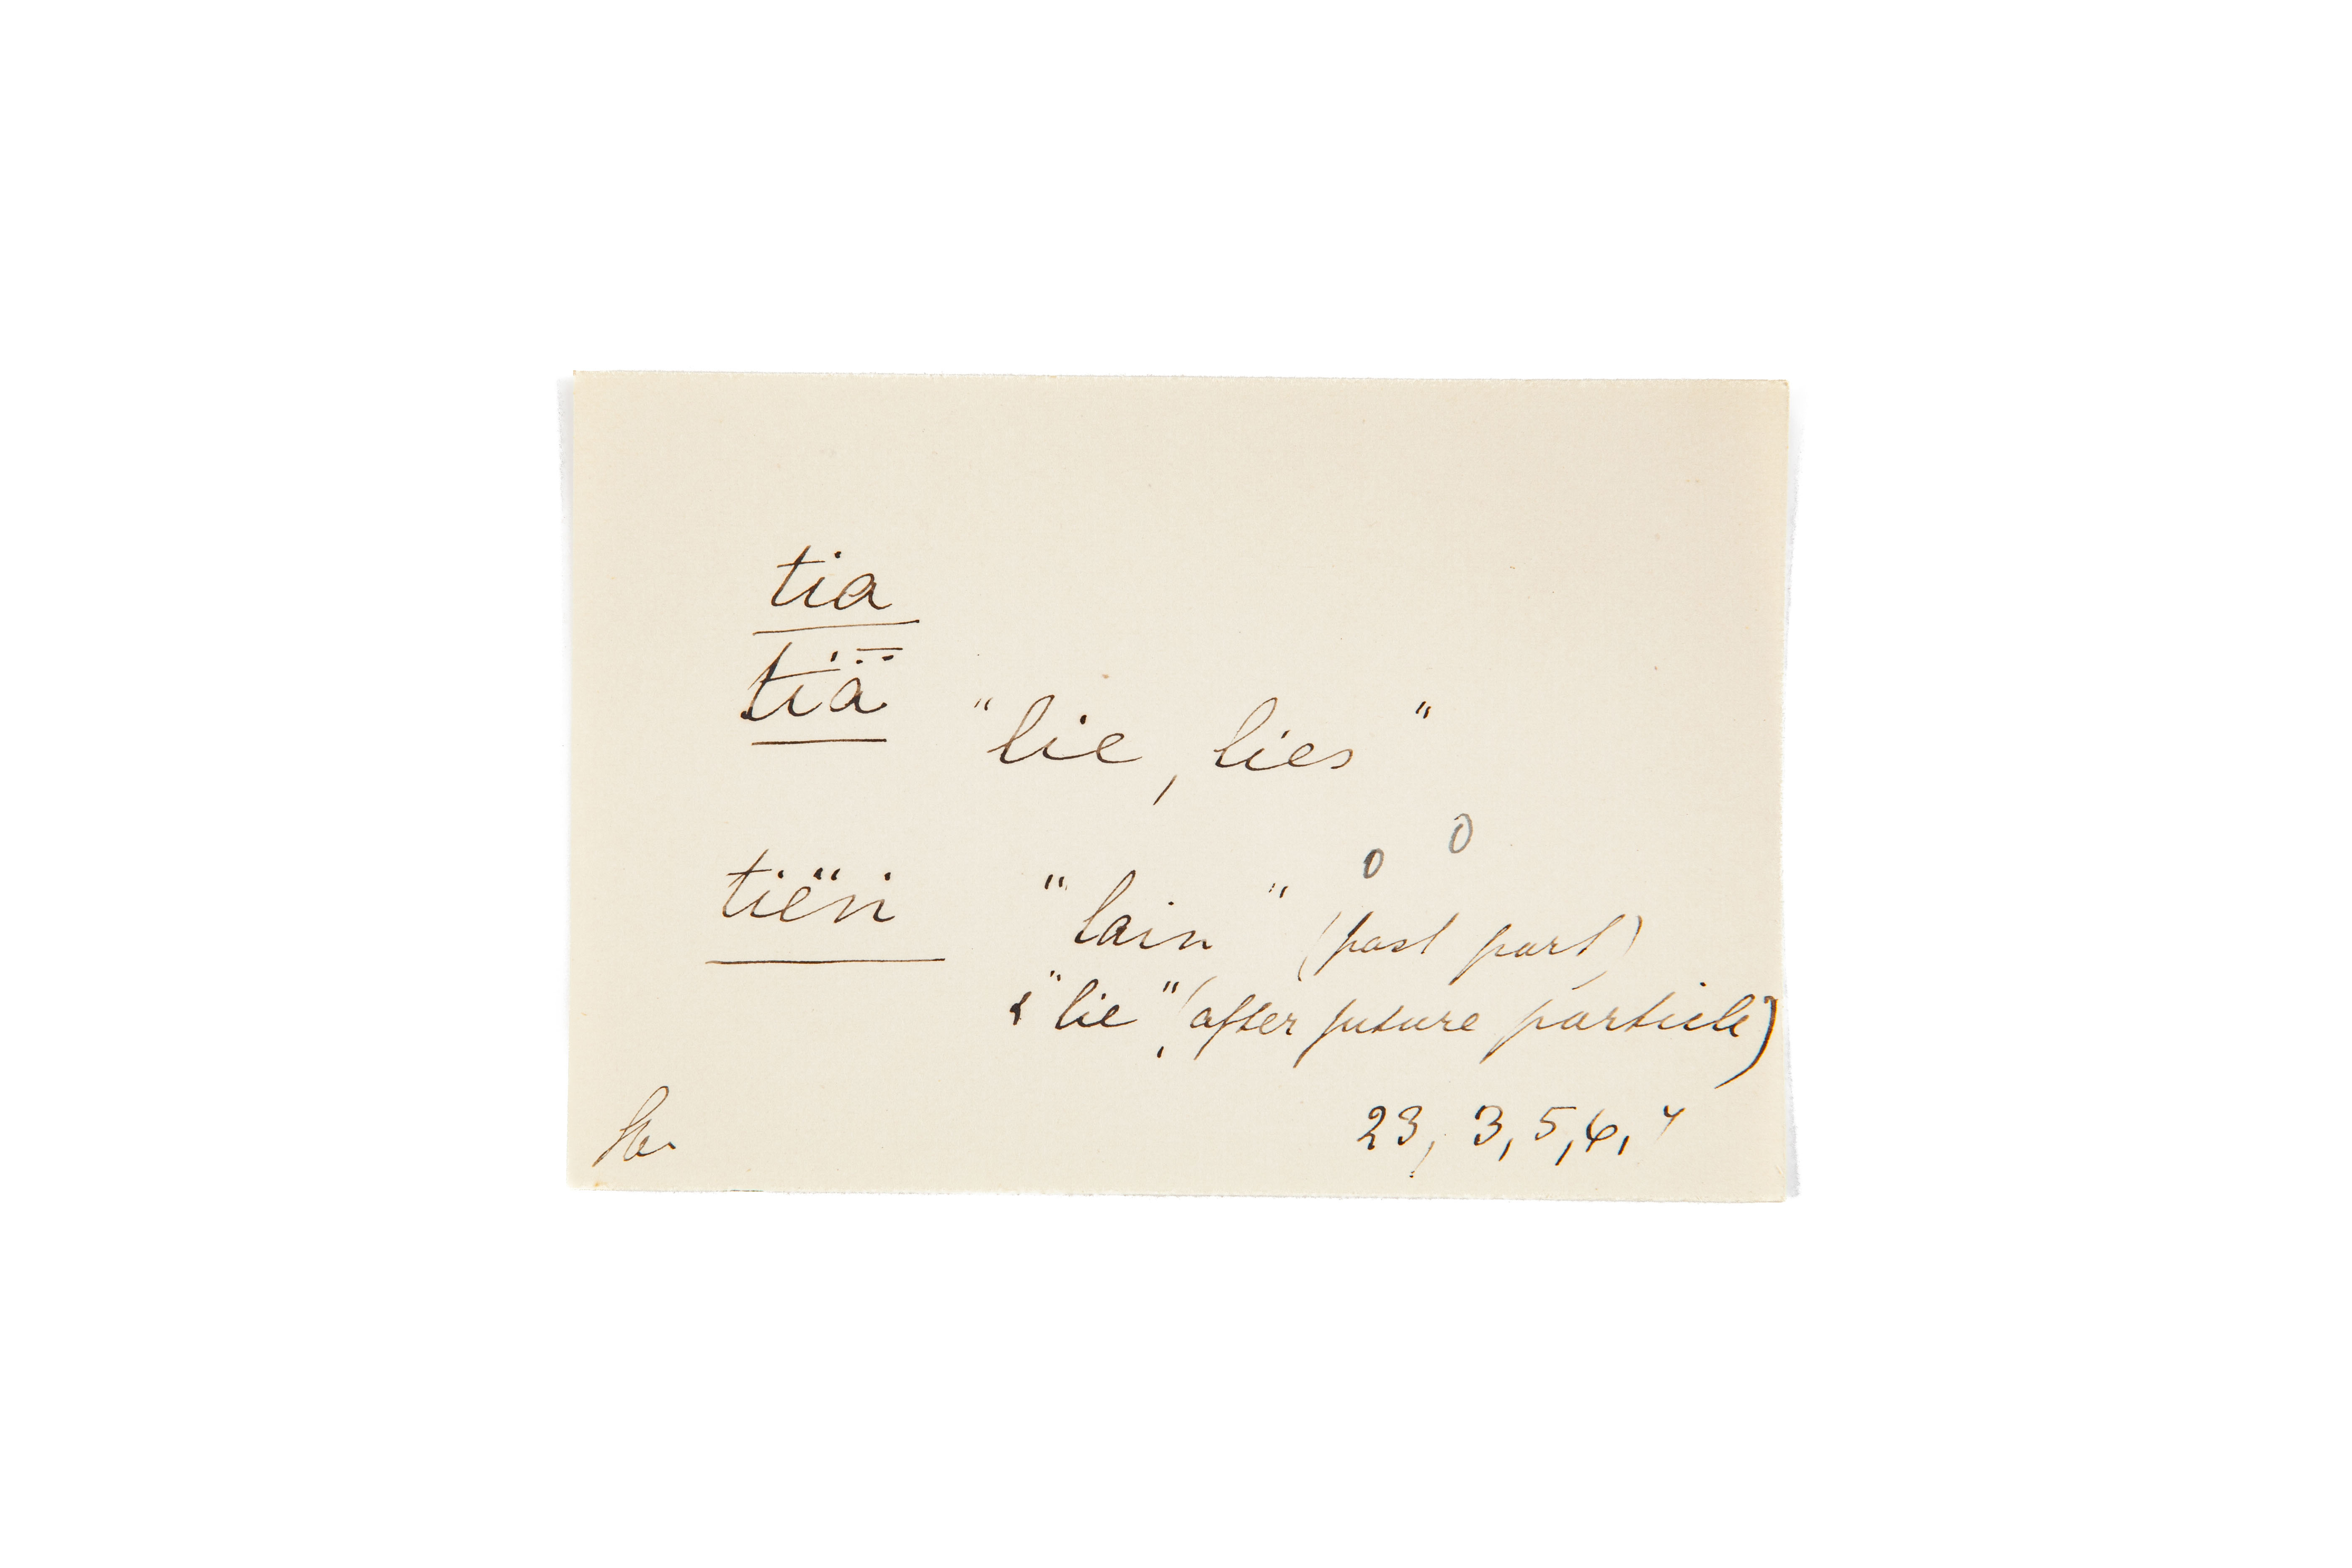 tia
tiǟ "lie, lies"
0 0
tiëri "lain" (past part)
"lie", (after future particle)
23, 3, 5, 6, 7